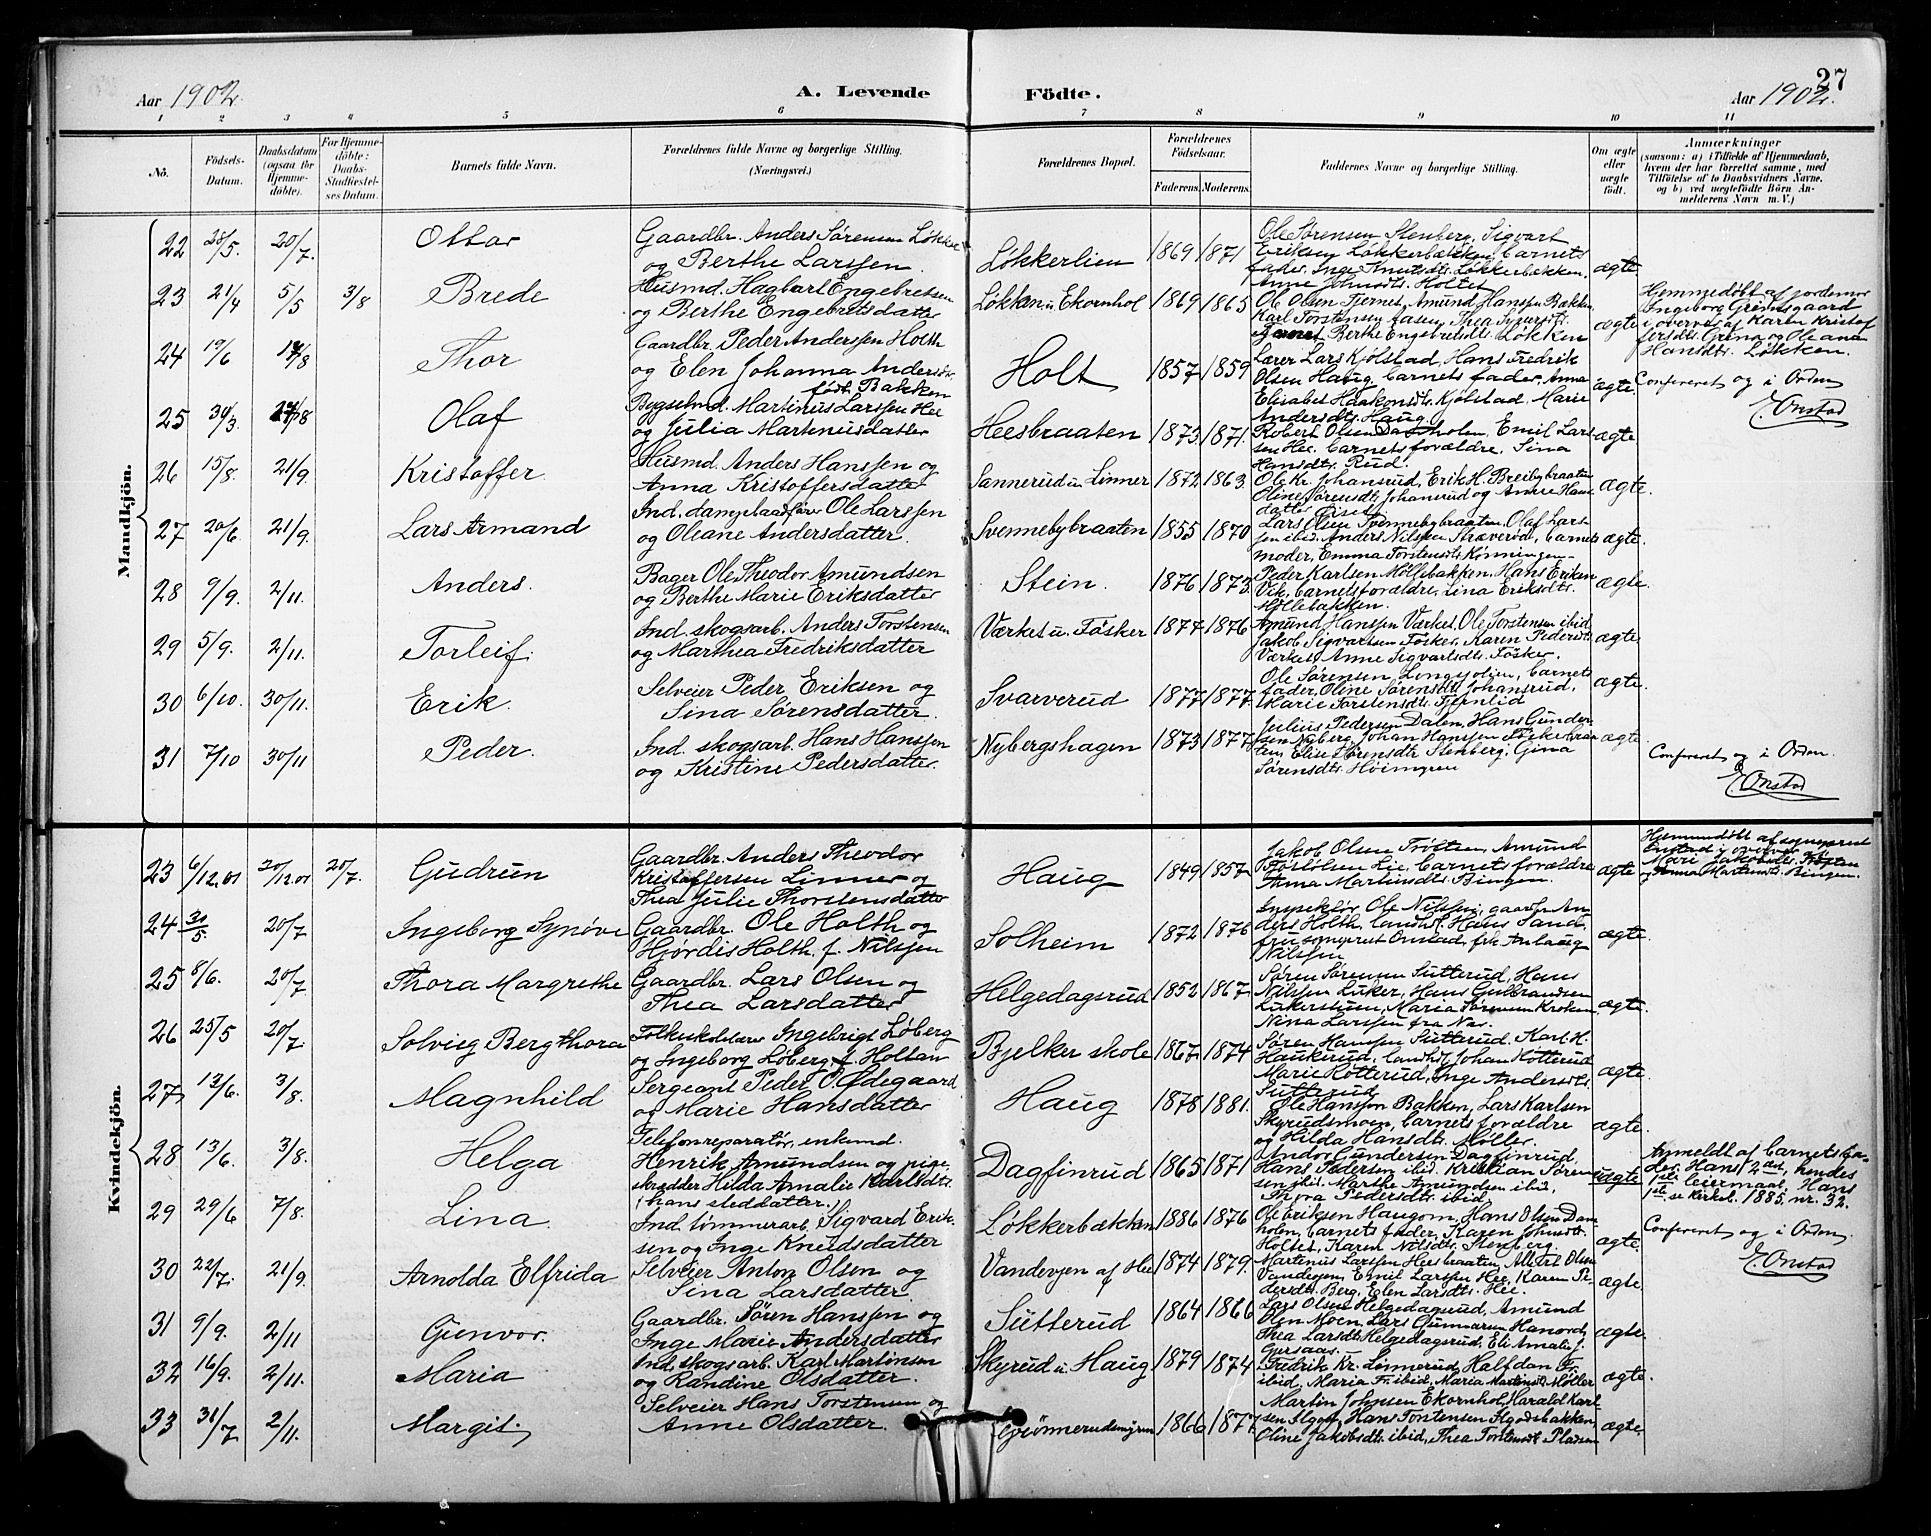 27
Aar 1902. A. Levende Födte. Aar 1902.
1 2 3 4 5 6 7 8 9 10 11
No. Födsels-Datum. Daabsdatum (ogsaa for Hjemmedöbte). For Hjemmedöbte: Daabs-Stadfæstelses Datum. Barnets fulde Navn. Forældrenes fulde Navne og borgerlige Stilling. (Næringsvei.) Forældrenes Bopæl. Forældrenes Födselsaar. Faderens. Moderens. Faddernes Navne og borgerlige Stilling. Om ægte eller uægte födt. Anmærkninger
(saasom: a) i Tilfælde af Hjemmedaab, hvem der har forrettet samme, med Tilföielse af to Daabsvidners Navne, og b) ved uægtefödte Börn Anmelderens Navn m. V.)
Mandkjön.
22 28/5 20/7. Ottar Gaardbr. Anders Sørensen Løkken og Berthe Larssen. Løkkerlien 1869 1871 Ole Sørensen Stenberg, Sigvart Eriksen Løkkerbækken, barnets fader, Inge Knutsdtr. Løkkerbækken, Anne Johnsdtr. Holtet ægte.
23 21/4 5/5 3/8 Brede Husmd. Hagbart Engebretsen og Berthe Engebretsdatter Løkken u. Ekornhol 1869 1865 Ole Olsen Tjernet, Amund Hanssen Bækken, Karl Torstensen Aasen, Thea Berthe Engebretsdtr. Løkken ægte Hjemmedøbt af jordemor Ingeborg Grimsgaard i overvær af Karen Kristofersdtr. Grina og Oleana Hansdtr. Løkken.
24 19/6 17/8 Thor Gaardbr. Peder Anderssen Holth og Elen Johanna Andersdtr. født Bakken Holt 1857 1859 Lærer Lars Kjølstad, Hans Fredrik Olsen Haug, barnets fader, Anna Elisabet Haakonsdtr. Kjølstad, Marie Andersdtr. Haug ægte. Confereret og i Orden
E. Onstad
25 30/3 Olaf Bygselmd. Martinus Larssen Hee og Julia Martinusdatter Heesbraaten 1873 1871. Robert Olsen Damholen, Emil Larssen Hee, barnets forældre, Sina Hansdtr. Rud. ægte
26 15/8 21/9. Kristoffer Husmd. Anders Hanssen og Anna Kristoffersdatter Sannerud u. Linner 1872 1863. Ole Kr. Johansrud, Erik H. Breibybraaten, Oline Sørensdtr. Johansrud og Anne Hansdatter ægte.
27 20/6 21/9. Lars Armand Ind. Ole Larssen og Oleane Andersdatter. Svennebybraaten 1855 1870 Lars Olsen Svennebybraaten, Olaf Larssen ibid. Anders Nilssen Stræverød, barnets moder, Emma Torstensdtr. ægte.
28 9/9. 2/11. Anders. Bager Ole Theodor Amundsen og Berthe Marie Eriksdatter Stein. 1876 1873. Peder Karlsen Møllebakken, Hans Eriksen Vik, barnets forældre, Lina Eriksdtr. Møllebakken. ægte.
29 5/9. 2/11. Torleif. Ind. skogsarb. Anders Torstensen og Marthea Fredriksdatter Værket u. Fösker 1877 1876 Amund Hanssen Værket, Ole Torstensen ibid. Jakob Sigvartsen Fösker, Karen Pedersdtr. Værket, Anne Sigvartsdtr. Fösker. ægte
30 6/10. 30/11. Erik. Selveier Peder Eriksen og Sina Sørensdatter. Svarverud 1877 1877. Ole Sørensen, barnets fader, Oline Sørensdtr. Johansrud, Marie Torstensdtr. Tjernlid ægte.
31 7/10 30/11 Peder. Ind. skogsarb. Hans Hanssen og Kristine Pedersdatter. Nybergshagen 1873 1877. Julius Pedersen Dalen, Hans Gundersen Nyberg, Johan Hanssen, Elise Sørensdtr. Stenberg, Gina Sørensdtr. Høimyren ægte. Confereret og i Orden.
E. Onstad
Kvindekjön.
23 6/12.01 20/12.01 20/7. Gudrun Gaardbr. Anders Theodor Kristoffersen Linner og Thea Julie Thorstensdatter Haug 1849 1857 Jakob Olsen Trösten, Amund Lie, barnets forældre, Anna Martinsdtr. Bingen. ægte Hjemmedøbt af sogneprest Onstad i overvær af Mari Jakobsdtr. Trösten og Anna Martinsdtr. Bingen.
24 30/5. 20/7 Ingeborg Synöve Gaardbr. Ole Holth og Hjördis Holth f. Nilssen Solheim 1872 1876 Inspektør Ole Nilssen, gaardbr. Anders Holth, landh. Hans Sand, fru sogneprest Onstad, frk. Aslaug Nilssen ægte.
25 8/6. 20/7 Thora Margrethe Gaardbr. Lars Olsen og Thea Larsdatter Helgedagsrud 1852 1867. Søren Sørensen Sutterud, Hans Nilssen Luker, Hans Gulbrandsen Lukerstuen, Maria Sørensen Krosken, Nina Larssen fra Næs. ægte.
26 25/5 20/7. Solvieg Bergthora Folkeskolelærer Ingebrigt Løberg og Ingeborg Løberg f. Holtan Bjelker skole 1867 1874 Søren Hanssen Sutterud, Karl H. Haukerud, landh. Johan Hotterud, Marie Hotterud, Inge Andersdtr. Sutterud ægte.
27 13/6. 3/8. Magnhild Sergeant Peder O. Ødegaard og Marie Hansdatter Haug 1878 1881. Ole Hanssen Bakken, Lars Karlsen Skyrudsmoen, barnets forældre og Hilda Hansdtr. Møller. ægte.
28 13/6. 3/8. Helga Telefonreparatør, enkemd. Henrik Amundsen og pige, Hilda Amalie Karlsdtr. (hans steddatter.) Dagfinrud 1865 1871 Andor Gundersen Dagfinrud, Hans Pedersen ibid. Kristian Sørensen ibid. Marthe Amundsen ibid, Thora Pedersdtr. ibid. uægte Anmeldt af barnets fader. Hans 2det, hendes 1ste leiermaal. Hans 1ste se kirkeb. 1885. nr. 32.
29 29/6 7/8. Lina. Ind. tømmerarb. Sigvard Eriksen og Inge Knudsdatter Løkkerbækken 1886 1876 Ole Eriksen Haugom, Hans Olsen Damholen, barnets fader, Karen Johnsdtr. Holtet, Karen Nilsdtr. Stenberg. ægte. Confereret og i Orden.
E. Onstad
30 22/7. 21/9. Arnolda Elfrida Selveier Anton Olsen og Sina Larsdatter. Vandevjen af Hee 1874 1879. Martinus Larssen Heesbraaten, Alfred Olsen Vandevjen, Emil Larssen Hee, Karen Pedersdtr. Berg, Elen Larsdtr. Hee. ægte.
31 9/9. 2/11 Gunvor. Gaardbr. Søren Hanssen og Inge Marie Andersdatter Sutterud 1864 1866 Lars Olsen Helgedagsrud, Amund Olsen Moen, Lars Gunnarsen Hanord, Thea Larsdtr. Helgedagsrud, Eli Amalie J. ægte.
32 16/9. 2/11. Maria Ind. skogsarb. Karl Martinsen og Randine Olsdatter. Skyrud u. Haug 1879 1874 Fredrik Kr. Linnerud, Halfdan Fr. ibid, Maria Fr. ibid, Maria Martinsdtr. Møller ægte.
33 31/7 2/11. Margit. Selveier Hans Torstensen og Anne Olsdatter. Grönnerudsmyren 1866 1877. Martin Johnsen Ekornhol, Harald Karlsen, Hans Torstensen, Oline Jakobsdtr. ibid, Thea Torstensdtr. Pladsen ægte.